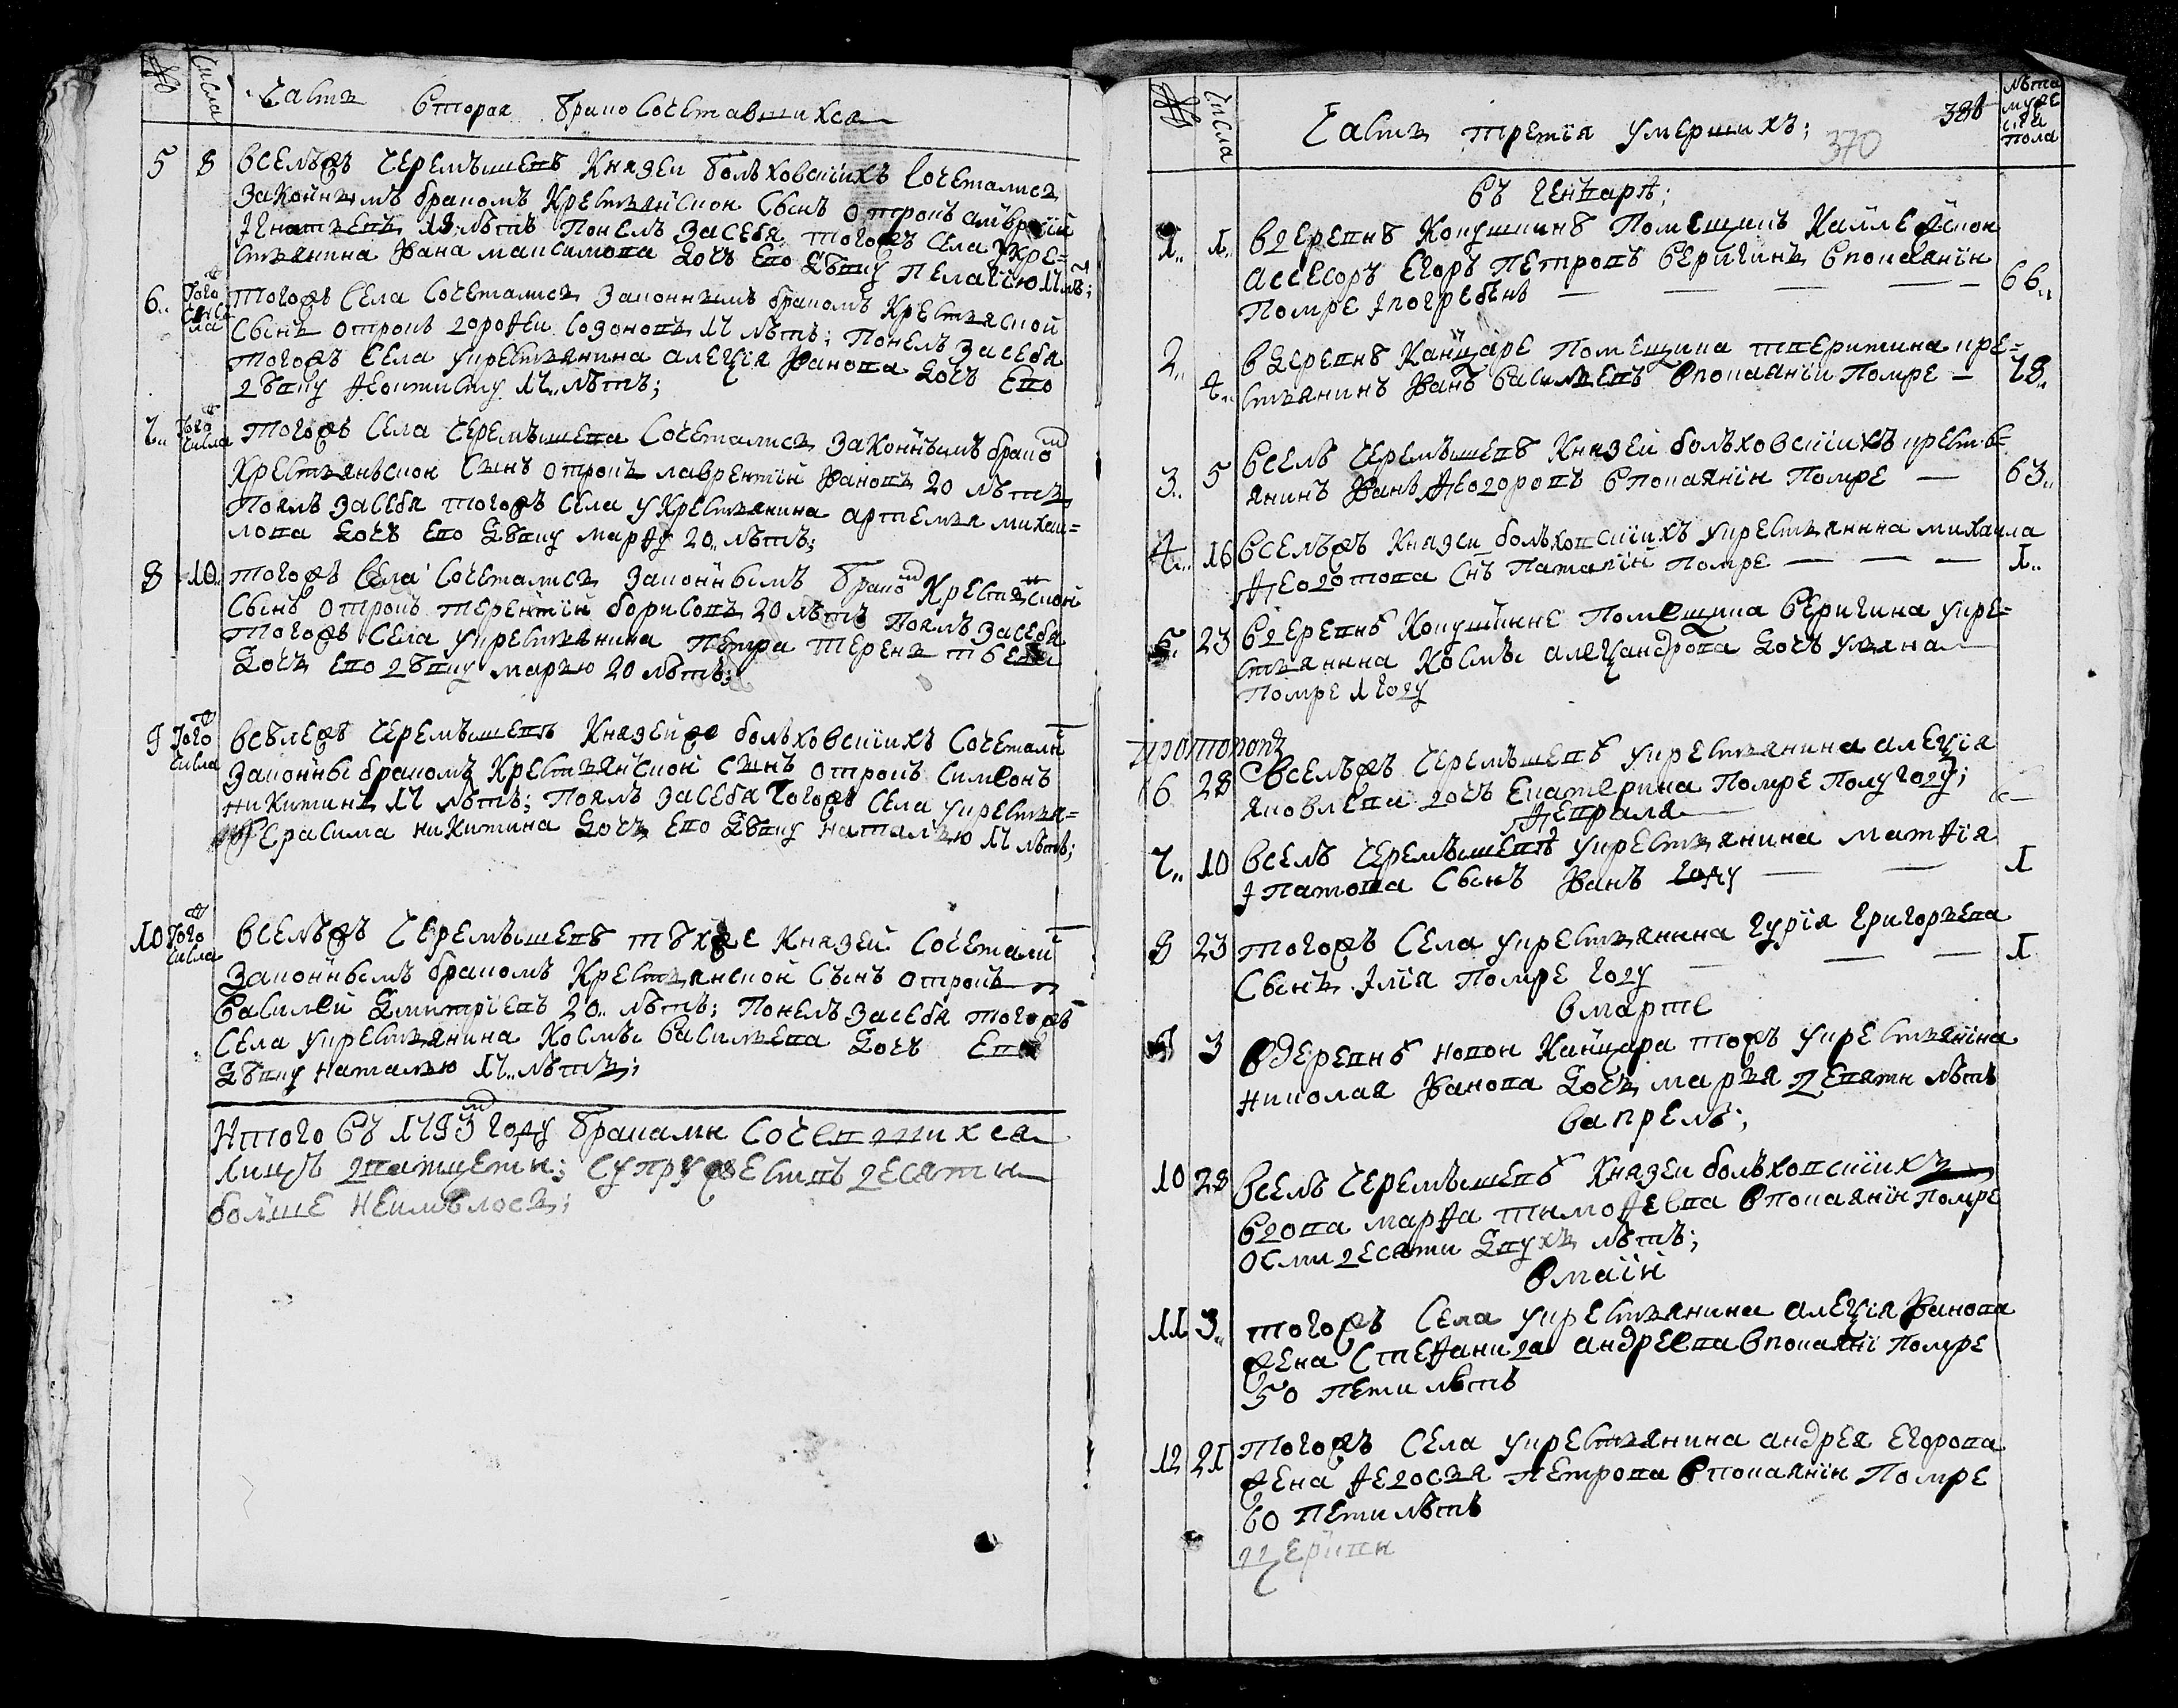 № числа Часть вторая бракосочетавшихся
5 8 вселѣжъ черемышевѣ князеи болховскиихъ сочеталися
законнымъ бракомъ крестьянской сынъ отрокъ
Игнатьевъ 18 лѣтъ понелъ засебя тогожъ села укре=
стьянина Ивана максимова дочь ево дѣвку пелагию 17 лѣ;
6 того числа тогожъ села сочеталися законнымъ бракомъ крестьяской
сынъ отрокъ гордеи созоновъ 17 лѣтъ; понелъ засебя
тогожъ села укрестьянина алеѯія Иванова дочь ево
дѣвку Ѳеоктисту 17 лѣтъ;
7 того числа тогожъ села черемышева сочеталися законнымъ брако
крестьяньскои сынъ отрокъ лаврентіи Ивановъ 20 лѣтъ
поялъ засебя тогожъ села укрестьянина артемья михаи=
лова дочь ево дѣвку марѲу 20 лѣтъ;
8 10 тогожъ села сочеталися законнымъ брако крестьяской
сынъ отрокъ терентіи борисовъ 20 лѣтъ поялъ засебя
тогожъ села укрестьянина петра терентьева
дочь ево дѣвку марью 20 лѣтъ;
9 того числа всѣлежъ черемышевѣ князейже болховскиихъ сочетали
законны бракомъ крестьянской сынъ отрокъ симеонъ
никитинъ 17 лѣтъ; поялъ засебя тогожъ села укрестья=
герасима никитина дочь ево дѣвку наталью 17 лѣтъ;
10 того числа вселѣжъ черемышевѣ тѣхже князей сочетали
законнымъ бракомъ крестьянской сынъ отрокъ
василей дмитріевъ 20 лѣтъ; понелъ засебя тогожъ
села укрестьянина космы васильева дочь ево
дѣвку наталью 17 лѣтъ;
Итого въ 1793 году браками сочевшихся
лицъ дватцети; супружествъ десяти
болше неимѣлось;
№ числа Часть третія умершихъ; 370 386 лѣта муже ска пола
въ генварѣ;
1 1 вдеревнѣ Кокушкинѣ помещикъ Каллежской
асесоръ Егоръ Петровъ веригинъ впокаянии
помре Iпогребенъ — 66
2 4 вдеревнѣ Канцаре помещика тверитина кре=
стьянинъ Иванъ васильевъ впокаянии помре — 78
3 5 вселѣ черемышевѣ князей болховскиихъ крестьѣ=
янинъ Иванъ Ѳеодоровъ впокаянии помре — 63
4 16 вселѣжъ князеи болховскиихъ укрестьянина михаила
Ѳеодотова снъ паталіи помре — 1
5 23 вдеревнѣ Кокушкине помещика веригина укре=
стьянина космы алеѯандрова дочь ульяна
помре 1 году
протопопъ
6 28 вселѣжъ черемышевѣ укрестьянина алеѯія
яковлева дочь екатерина помре полугоду;
Ѳевраля
7 10 вселѣ черемышевѣ укрестьянина матѲія
Iпатова сынъ Иванъ году — 1
8 23 тогожъ села укрестьянина гурія григорьева
сынъ Iлія помре году — 1
вмарте
9 3 вдеревнѣ новои Канцара тожъ укрестьяніна
николая Иванова дочь марья девяти лѣтъ
вапрелѣ;
10 28 вселѣ черемышевѣ князеи болховскиихъ
вдова марѲа тимоѲевна впокаянии помре
осмидесяти двухъ лѣтъ;
вмаіи
11 3 тогожъ села укрестьянина алеѯія Иванова
жена стеѲанида андреева впокаяни помре
50 пети лѣтъ
12 21 тогожъ села укрестьянина андрея егорова
жена Ѳедосья петрова впокаянии помре
60 пети лѣтъ